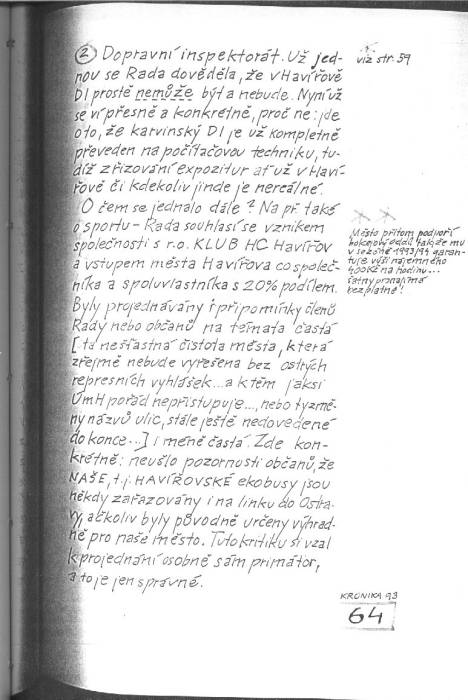 ② Dopravní inspektorát. Už jed-
nou se Rada dověděla, že v Havířově
DI prostě nemůže být a nebude. Nyní už
se ví přesně a konkrétně, proč ne: jde
o to, že karvinský DI je už kompletně
převeden na počítačovou techniku, tu-
díž zřizování expozitur ať už v Haví-
řově či kdekoliv jinde je nereálné.
O čem se jednalo dále? Na př. také
o sportu – Rada souhlasí se vznikem
společnosti s r.o. KLUB HC Havířov
a vstupem města Havířova co společ-
níka a spoluvlastníka s 20% podílem.
Byly projednávány i připomínky členů
Rady nebo občanů na témata častá
[ta nešťastná čistota města, která
zřejmě nebude vyřešena bez ostrých
represních vyhlášek... a k těm jaksi
ÚmH pořád nepřistupuje..., nebo ty změ-
ny názvů ulic, stále ještě nedovedené
do konce...] i méně častá. Zde kon-
krétně: neušlo pozornosti občanů, že
NAŠE, t.j. HAVÍŘOVSKÉ ekobusy jsou
někdy zařazovány i na linku do Ostra-
vy, ačkoliv byly původně určeny výhrad-
ně pro naše město. Tuto kritiku si vzal
k projednání osobně sám primátor,
a to je jen správné.
viz str. 59
Město přitom podpoří
hokejový oddíl tak, že mu
v sezóně 1993/94 garan-
tuje výši nájemného
400Kč na hodinu...
šatny pronajímá
bezplatně!
KRONIKA 93
64